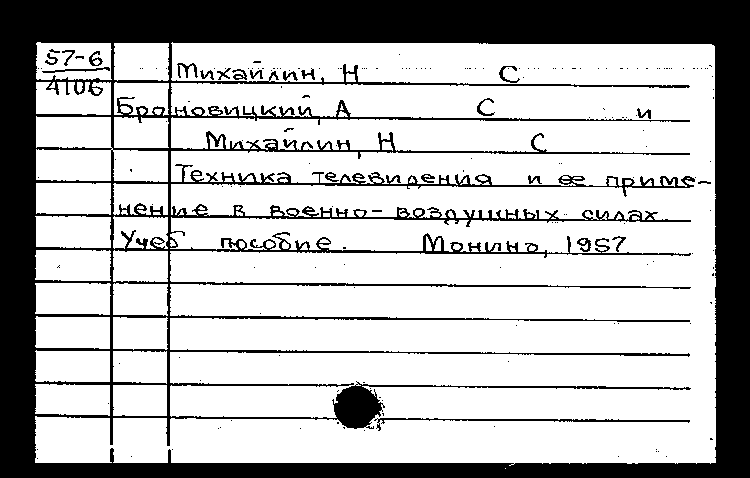 57-6
4106
Михайлин, Н С
Броновицкий, А С и
Михайлин, Н С
Техника телевидения и ее приме-
нение в военно-воздушных силах.
Учеб. пособие. Монино, 1957